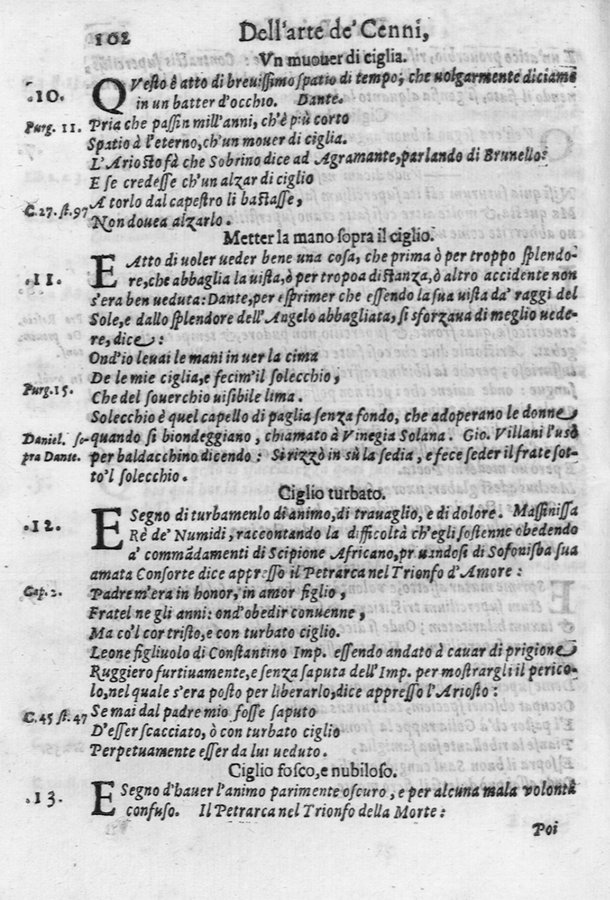 102 Dell'arte de' Cenni,
Vn muouer di ciglia.
.10. QVesto è atto di breuissimo spatio di tempo, che uolgarmente diciamo
in un batter d'occhio. Dante.
Purg. 11. Pria che passin mill'anni, ch'è più corto
Spatio à l'eterno, ch'un mouer di ciglia.
L'Ariosto fà che Sobrino dice ad Agramante, parlando di Brunello:
E se credesse ch'un alzar di ciglio
A torlo dal capestro li bastasse,
C. 27. st. 97 Non douea alzarlo.
Metter la mano sopra il ciglio.
.11. E Atto di uoler ueder bene una cosa, che prima ò per troppo splendo-
re, che abbaglia la uista, ò per tropoa distanza, ò altro accidente non
s'era ben ueduta: Dante, per esprimer che essendo la sua uista da' raggi del
Sole, e dallo splendore dell'Angelo abbagliata, si sforzaua di meglio uede-
re, dice:
Ond'io leuai le mani in uer la cima
De le mie ciglia, e fecim'il solecchio,
Purg. 15. Che del souerchio uisibile lima.
Solecchio è quel capello di paglia senza fondo, che adoperano le donne
Daniel. so- quando si biondeggiano, chiamato à Vinegia Solana. Gio. Villani l'usò
pra Dante. per baldacchino dicendo: Si rizzò in sù la sedia, e fece seder il frate sot-
to'l solecchio.
Ciglio turbato.
.12. E Segno di turbamenlo di animo, di trauaglio, e di dolore. Massinissa
Rè de' Numidi, raccontando la difficoltà ch'egli sostenne obedendo
a' commãdamenti di Scipione Africano, pr uandosi di Sofonisba sua
amata Consorte dice appresso il Petrarca nel Trionfo d'Amore:
Cap. 2. Padre m'era in honor, in amor figlio,
Fratel ne gli anni: ond'obedir conuenne,
Ma co'l cor tristo, e con turbato ciglio.
Leone figliuolo di Constantino Imp. essendo andato à cauar di prigione
Ruggiero furtiuamente, e senza saputa dell'Imp. per mostrargli il perico-
lo, nel quale s'era posto per liberarlo, dice appresso l'Ariosto:
C. 45 st. 47 Se mai dal padre mio fosse saputo
D'esser scacciato, ò con turbato ciglio
Perpetuamente esser da lui ueduto.
Ciglio fosco, e nubiloso.
.13. E Segno d'hauer l'animo parimente oscuro, e per alcuna mala volontà
confuso. Il Petrarca nel Trionfo della Morte:
Poi